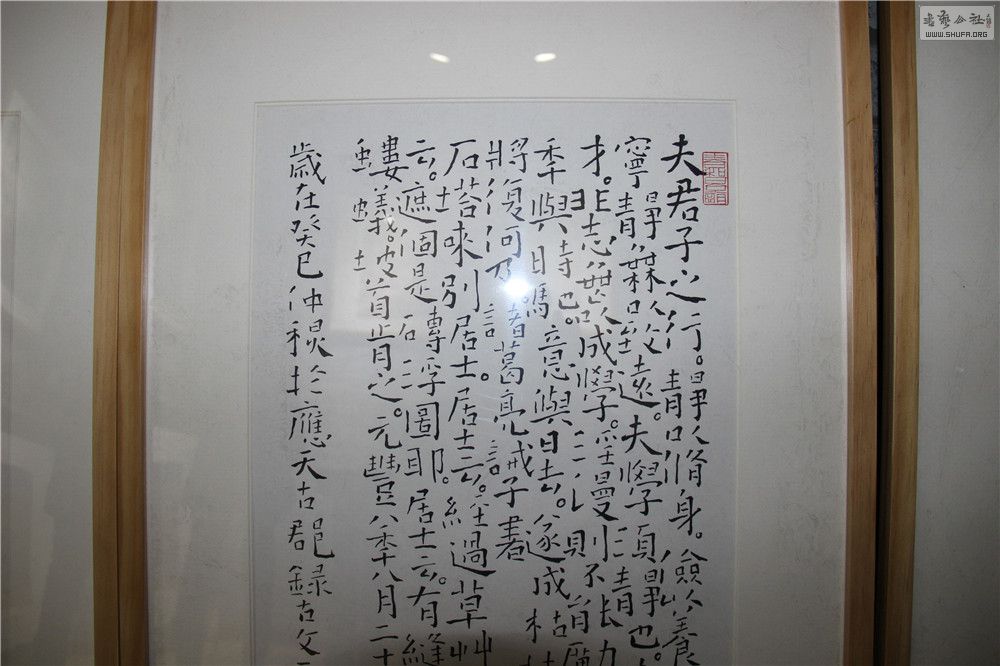 夫君子之行。靜以脩身。儉以養
寧靜無以致遠。夫學須靜也。
才。非志無以成學。淫慢則不能勵
年與時馳。意與日去。遂成枯
將復何及。諸葛亮誡子書
石塔來別居士。居士云。經過草
云。遮固是塼浮圖耶。居士云。有縫
螻蟻。坡首肯之。元豐八年八月二十
歲在癸巳仲穐於應天古郡錄古文
書藝公社
WWW.SHUFA.ORG